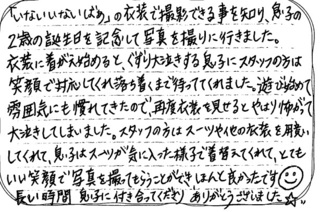 「いないいないばあ」の衣装で撮影できる事を知り、息子の
2歳の誕生日を記念して写真を撮りに行きました。
衣装に着がえ始めると、ぐずり大泣きする息子にスタッフの方は
笑顔で対応してくれ落ち着くまで待ってくれました。遊び始めて
雰囲気にも慣れてきたので、再度衣装を見せるとやはり怖がって
大泣きしてしまいました。スタッフの方はスーツや他の衣装を用意
してくれて、息子はスーツが気に入った様子で着替えてくれて、とても
いい笑顔で写真を撮ってもらうことができほんと良かったです
長い時間 息子に付き合ってくださり ありがとうございました☆。